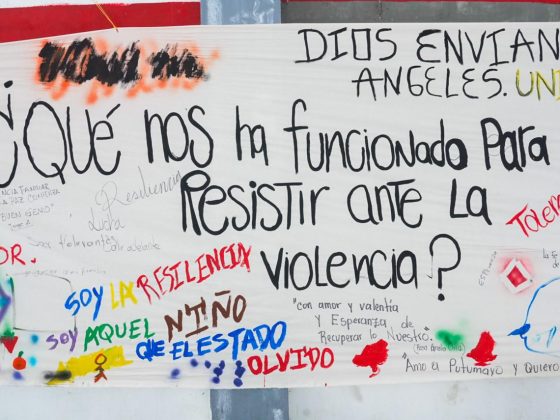 DIOS ENVIAN
ANGELES. UN
¿QUÉ NOS ha funcionado Para
Resistir ante La
violencia?
Resiliencia
Lucha
"BUEN GENIO"
Ser tolerantes
Salir adelante
Tolera
OR.
SOY LA RESILENCIA
SOY AQUEL NIÑO
QUE EL ESTADO
OLVIDO
"con amor y valentia
Y Esperanza de
Recuperar lo Nuestro".
"Amo el Putumayo y Quiero